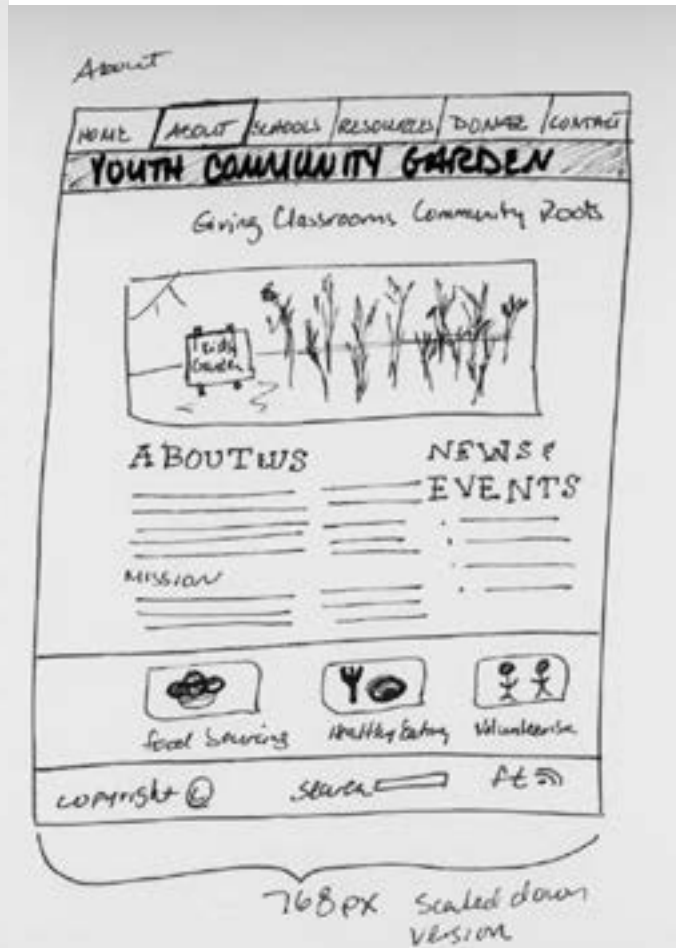 About
HOME ABOUT SCHOOLS RESOURCES DONATE CONTACT
YOUTH COMMUNITY GARDEN
Giving Classrooms Community Roots
Kids
Garden
ABOUT US
NEWS &
EVENTS
MISSION
Food Sourcing Healthy Eating
copyright ©
search
f t
768px scaled down
version